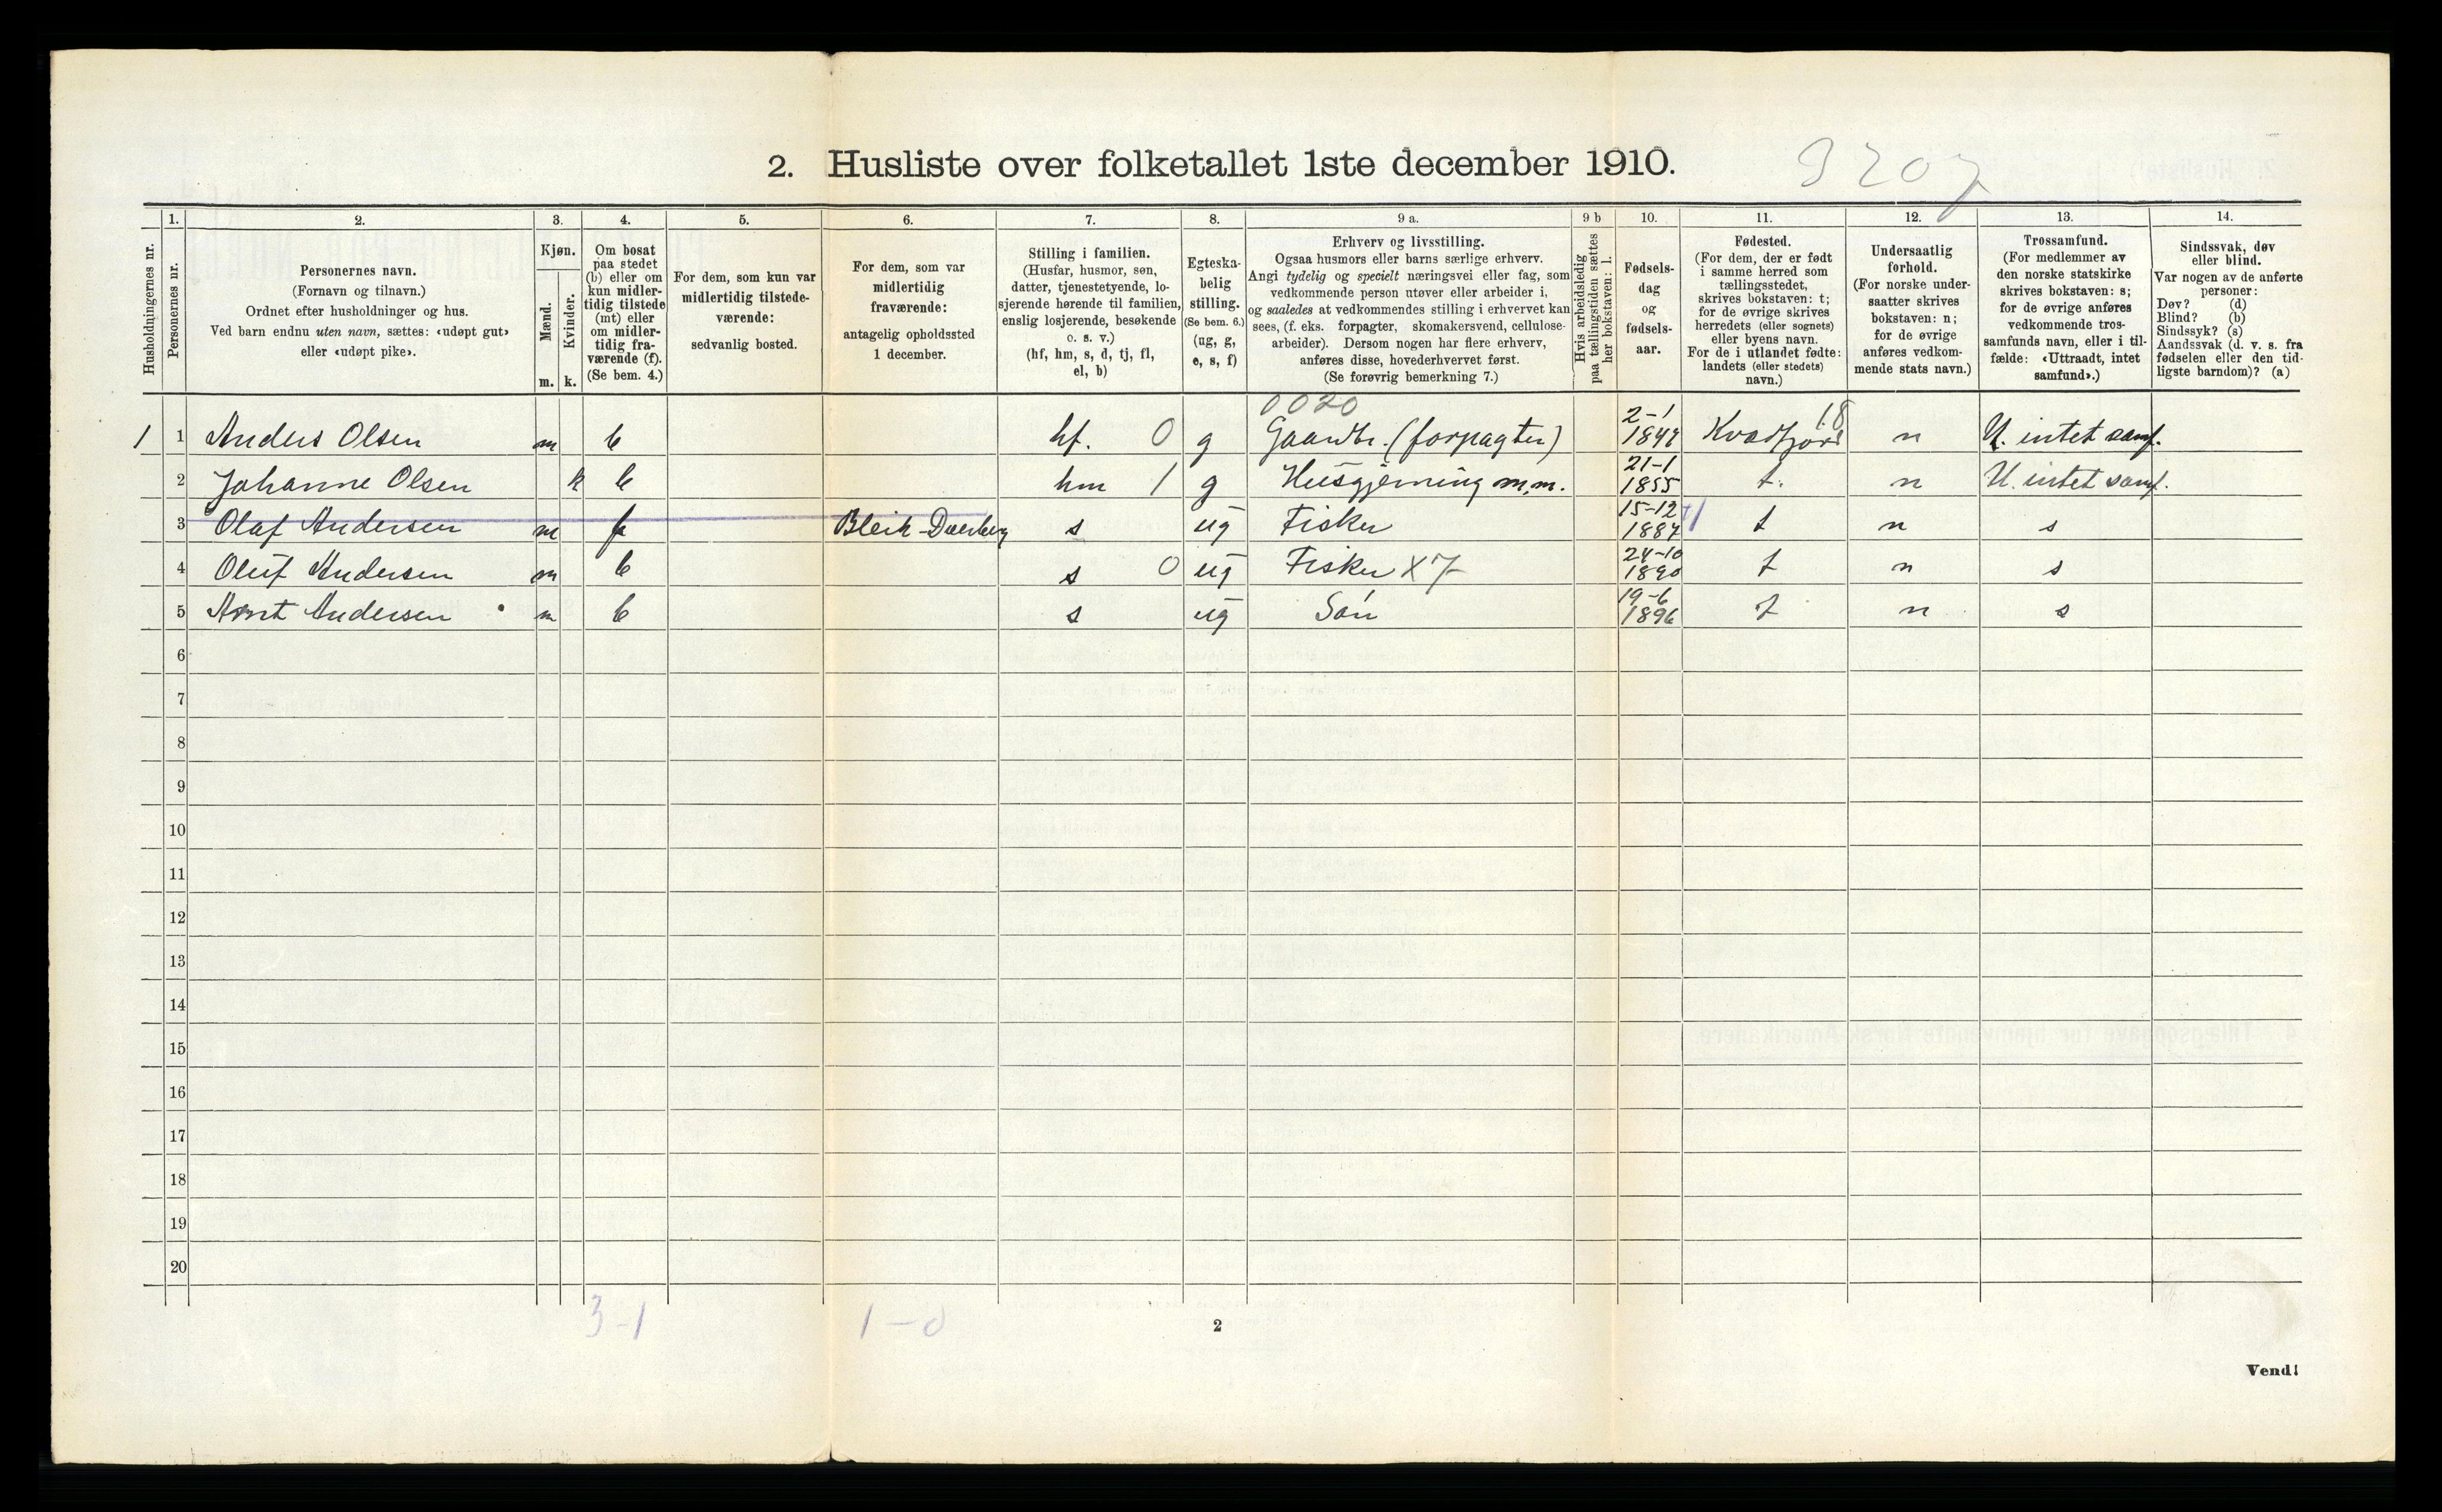 2. Husliste over folketallet 1ste december 1910.
3207
Husholdningernes nr.
1. 2. 3. 4. 5. 6. 7. 8. 9 a. 9 b 10. 11. 12. 13. 14.
Personernes nr.
Personernes navn.
(Fornavn og tilnavn.)
Ordnet efter husholdninger og hus.
Ved barn endnu uten navn, sættes: «udøpt gut»
eller «udøpt pike».
Kjøn.
Mænd.
Kvinder.
m. k.
Om bosat
paa stedet
(b) eller om
kun midler-
tidig tilstede
(mt) eller
om midler-
tidig fra-
værende (f).
(Se bem. 4.)
For dem, som kun var
midlertidig tilstede-
værende:
sedvanlig bosted.
For dem, som var
midlertidig
fraværende:
antagelig opholdssted
1 december.
Stilling i familien.
(Husfar, husmor, søn,
datter, tjenestetyende, lo-
sjerende hørende til familien,
enslig losjerende, besøkende
o. s. v.)
(hf, hm, s, d, tj, fl,
el, b)
Egteska-
belig
stilling.
(Se bem. 6.)
(ug, g,
e, s, f)
Erhverv og livsstilling.
Ogsaa husmors eller barns særlige erhverv.
Angi tydelig og specielt næringsvei eller fag, som
vedkommende person utøver eller arbeider i,
og saaledes at vedkommendes stilling i erhvervet kan
sees, (f. eks. forpagter, skomakersvend, cellulose-
arbeider). Dersom nogen har flere erhverv,
anføres disse, hovederhvervet først.
(Se forøvrig bemerkning 7.)
Hvis arbeidsledig
paa tællingstiden sættes
her bokstaven: l.
Fødsels-
dag
og
fødsels-
aar.
Fødested.
(For dem, der er født
i samme herred som
tællingsstedet,
skrives bokstaven: t;
for de øvrige skrives
herredets (eller sognets)
eller byens navn.
For de i utlandet fødte:
landets (eller stedets)
navn.)
Undersaatlig
forhold.
(For norske under-
saatter skrives
bokstaven: n;
for de øvrige
anføres vedkom-
mende stats navn.)
Trossamfund.
(For medlemmer av
den norske statskirke
skrives bokstaven: s;
for de øvrige anføres
vedkommende tros-
samfunds navn, eller i til-
fælde: «Uttraadt, intet
samfund».)
Sindssvak, døv
eller blind.
Var nogen av de anførte
personer:
Døv? (d)
Blind? (b)
Sindssyk? (s)
Aandssvak (d. v. s. fra
fødselen eller den tid-
ligste barndom)? (a)
0020
1 1 Anders Olsen m b hf. 0 g Gaardbr. (forpagter) 2-1 1847 Kvædfjord 18 n U. intet samf.
2 Johanne Olsen k b hm 1 g Husgjerning m.m. 21-1 1855 t. n U. intet samf.
3 Olaf Andersen m f Bleik s ug Fisker 15-12 1887 t n s
4 Oluf Andersen m b s 0 ug Fisker X 7 24-10 1890 t n s
5 Arnt Andersen m b s ug Søn 19-6 1896 t n s
6
7
8
9
10
11
12
13
14
15
16
17
18
19
20
3-1 1-0
2
Vend!